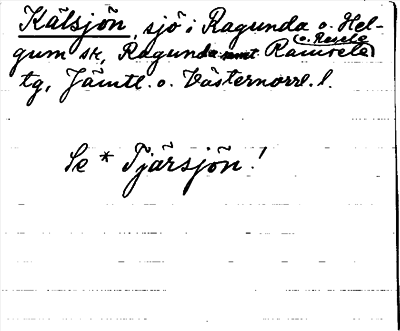 Kälsjön, sjö i Ragunda o. Hel-
gum sk, Ragunda samt Ramsele (o. Resele)
tg, Jämtl. o. Västernorrl. l.
Se * Tjärsjön!